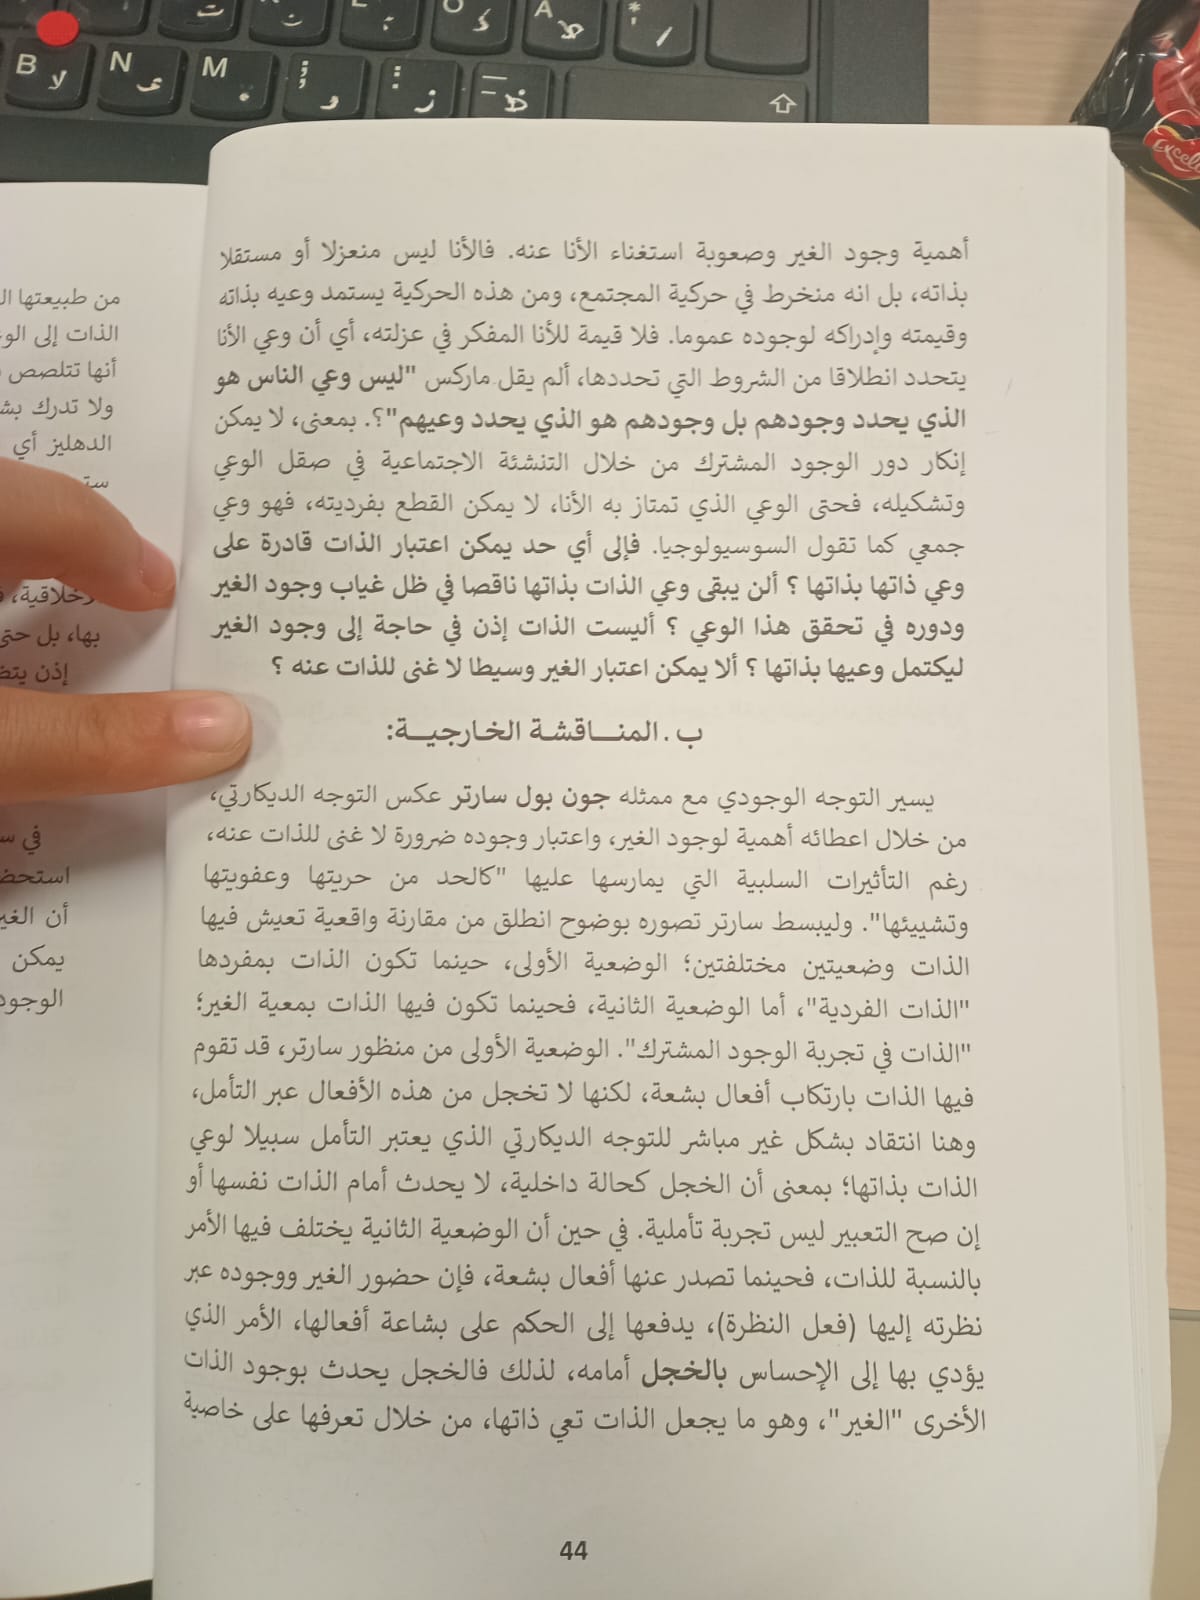 أهمية وجود الغير وصعوبة استغناء الأنا عنه. فالأنا ليس منعزلا أو مستقلا
بذاته، بل انه منخرط في حركية المجتمع، ومن هذه الحركية يستمد وعيه بذاته
وقيمته وإدراكه لوجوده عموما. فلا قيمة للأنا المفكر في عزلته، أي أن وعي الأنا
يتحدد انطلاقا من الشروط التي تحددها، ألم يقل ماركس "ليس وعي الناس هو
الذي يحدد وجودهم بل وجودهم هو الذي يحدد وعيهم"؟. بمعنى، لا يمكن
إنكار دور الوجود المشترك من خلال التنشئة الاجتماعية في صقل الوعي
وتشكيله، فحتى الوعي الذي تمتاز به الأنا، لا يمكن القطع بفرديته، فهو وعي
جمعي كما تقول السوسيولوجيا. فإلى أي حد يمكن اعتبار الذات قادرة على
وعي ذاتها بذاتها ؟ ألن يبقى وعي الذات بذاتها ناقصا في ظل غياب وجود الغير
ودوره في تحقق هذا الوعي ؟ أليست الذات إذن في حاجة إلى وجود الغير
ليكتمل وعيها بذاتها ؟ ألا يمكن اعتبار الغير وسيطا لا غنى للذات عنه ؟
ب. المنـــاقشـة الخـارجيـــة:
يسير التوجه الوجودي مع ممثله جون بول سارتر عكس التوجه الديكارتي،
من خلال اعطائه أهمية لوجود الغير، واعتبار وجوده ضرورة لا غنى للذات عنه،
رغم التأثيرات السلبية التي يمارسها عليها "كالحد من حريتها وعفويتها
وتشييئها". وليبسط سارتر تصوره بوضوح انطلق من مقارنة واقعية تعيش فيها
الذات وضعيتين مختلفتين؛ الوضعية الأولى، حينما تكون الذات بمفردها
"الذات الفردية"، أما الوضعية الثانية، فحينما تكون فيها الذات بمعية الغير؛
"الذات في تجربة الوجود المشترك". الوضعية الأولى من منظور سارتر، قد تقوم
فيها الذات بارتكاب أفعال بشعة، لكنها لا تخجل من هذه الأفعال عبر التأمل،
وهنا انتقاد بشكل غير مباشر للتوجه الديكارتي الذي يعتبر التأمل سبيلا لوعي
الذات بذاتها؛ بمعنى أن الخجل كحالة داخلية، لا يحدث أمام الذات نفسها أو
إن صح التعبير ليس تجربة تأملية. في حين أن الوضعية الثانية يختلف فيها الأمر
بالنسبة للذات، فحينما تصدر عنها أفعال بشعة، فإن حضور الغير ووجوده عبر
نظرته إليها (فعل النظرة)، يدفعها إلى الحكم على بشاعة أفعالها، الأمر الذي
يؤدي بها إلى الإحساس بالخجل أمامه، لذلك فالخجل يحدث بوجود الذات
الأخرى "الغير"، وهو ما يجعل الذات تعي ذاتها، من خلال تعرفها على خاصية
44
من طبيعتها
الذات إلى
أنها تتلصص
ولا تدرك
الدهليز أي
بها، بل حتى
إذن
في
أن الغير
يمكن
B
N
M
O
A